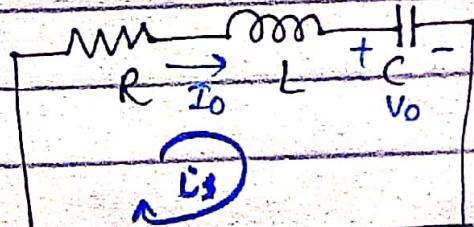 + -
R I₀ L C
V₀
i₁